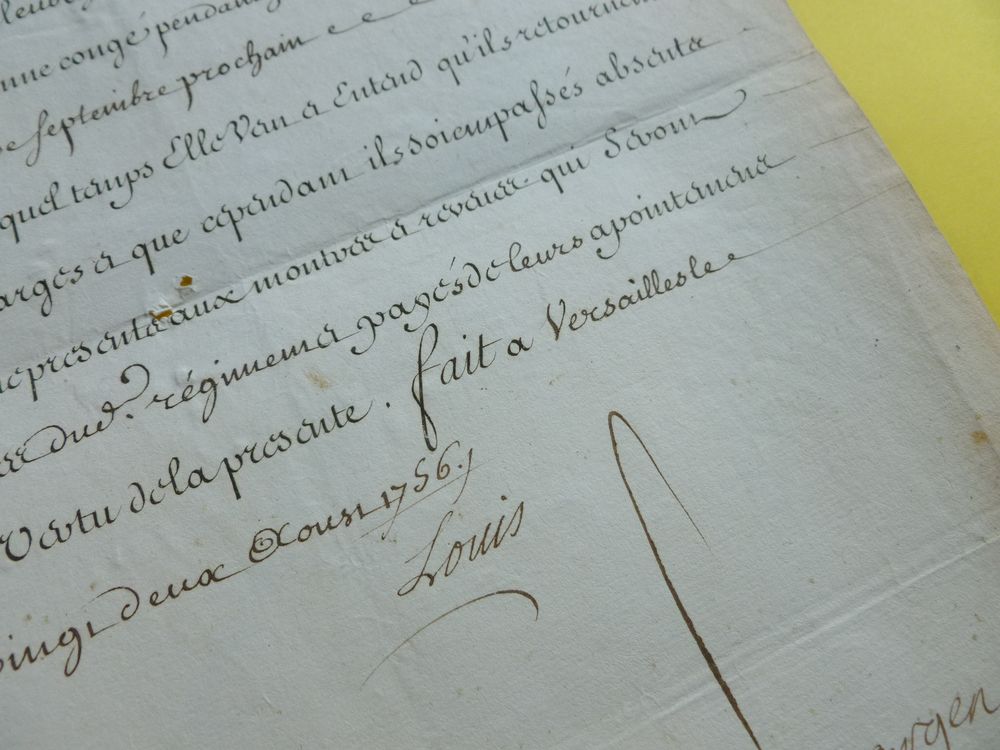 onne congé pendant
septembre prochain
quel temps Elle Veut & Entend qu'ils retournent
arges & que cependant ils soient passés absents
presents aux montres & reveües qui Seront
dud.t régiment & payés de leurs apointemens
Vertu de la presente. fait a Versailles le
vingt deux Aoust 1756.
Louis